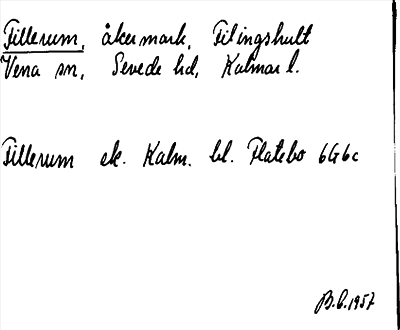 Fillerum, åkermark, Filingshult
Vena sn, Sevede hd, Kalmar l.
Fillerum ek. Kalm. bl. Flatebo 6G6c
B.C.1957